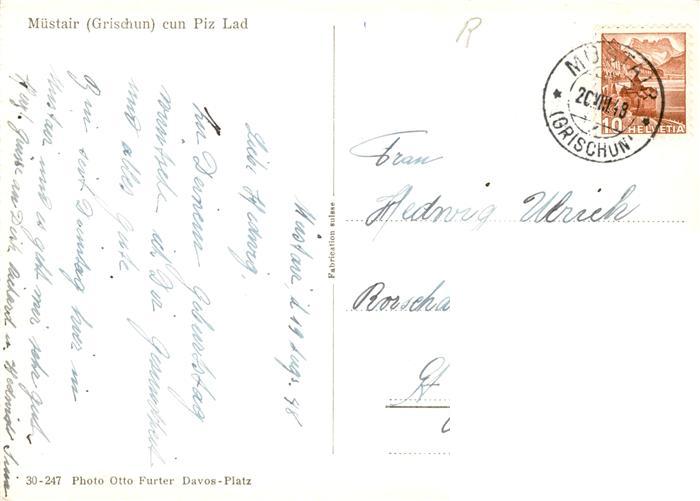 Müstair (Grischun) cun Piz Lad
Müstair, d 19 Aug. 48
Liebe Hedwig,
Zu Deinem Geburtstag
wünsche ich Dir Gesundheit
und alles Gute.
Bin seit Dienstag hier in
Müstair und es geht mir sehr gut.
Herzl. Grüsse an Dich, Richard u. Hedwigli
30-247 Photo Otto Furter Davos-Platz
Fabrication suisse
R
MÜSTAIR
20.VIII.48
(GRISCHUN)
10 HELVETIA
Frau
Hedwig Ulrich
Rorscha